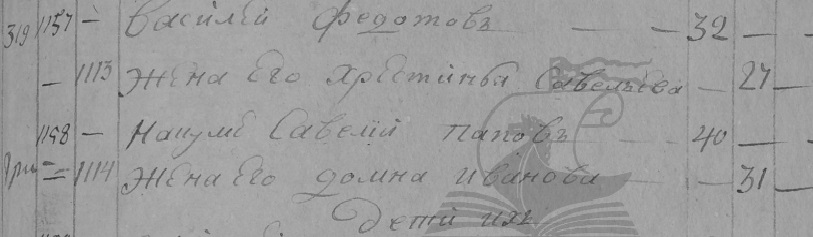 319 1157 — Василей Федотовъ — — 32 —
— 1113 Жена Его Хрестинья Савельева — 27 —
1158 — Наумъ Савелей Паповъ 40 —
— 1114 Жена Его домна Иванова — — 31 —
Дети ихъ